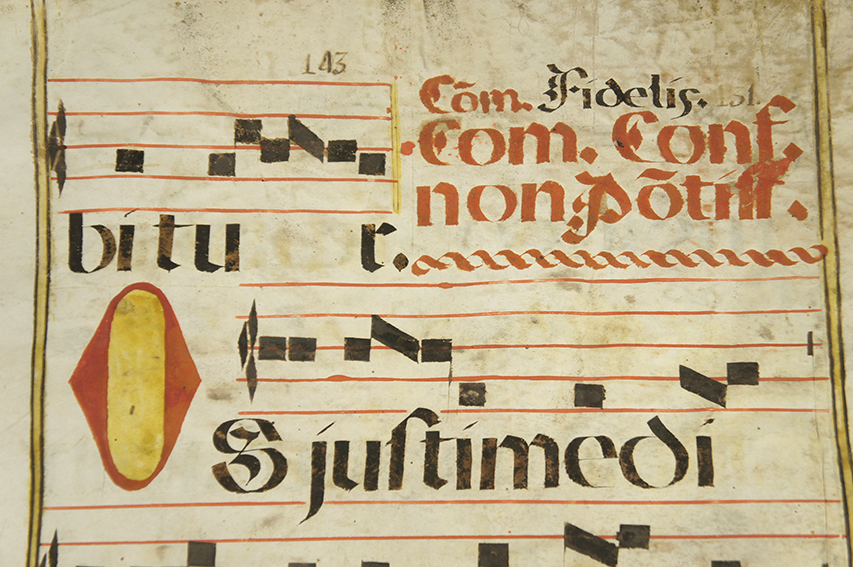 143
Cõm. Fidelis. 151.
Com. Conf.
non Põtiff.
bitu r.
OS juſtimedi